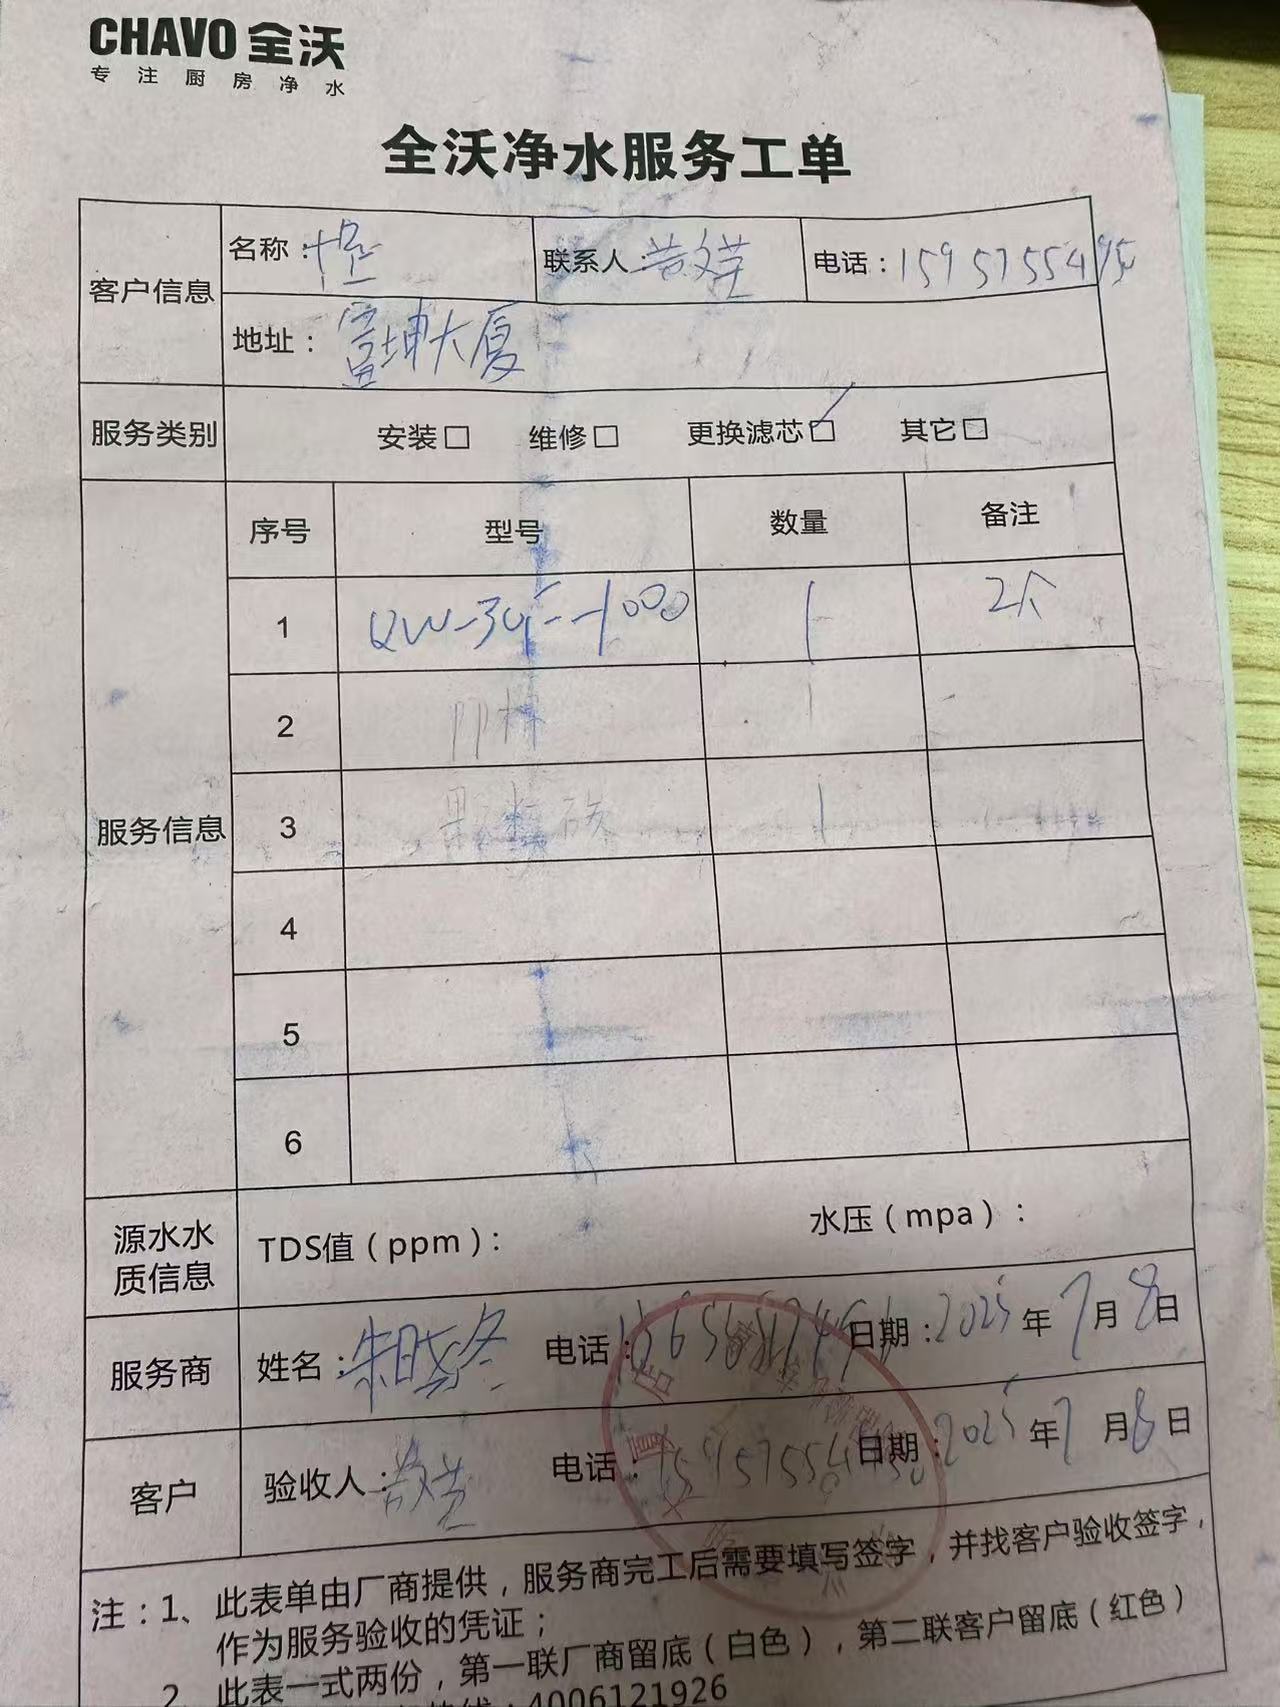 CHAVO 全沃
专注厨房净水
全沃净水服务工单
客户信息
名称：
联系人：
电话：
地址：富坤大厦
服务类别
安装□ 维修□ 更换滤芯□ 其它□
服务信息
序号 型号 数量 备注
1 QW-3015-1000 1 2个
2 PP棉 1
3 颗粒碳 1
4
5
6
源水水质信息
TDS值（ppm）：
水压（mpa）：
服务商
姓名：朱晓冬 电话： 日期：2025年7月8日
客户
验收人： 电话： 日期：2025年7月8日
注：1、此表单由厂商提供，服务商完工后需要填写签字，并找客户验收签字，
作为服务验收的凭证；
2、此表一式两份，第一联厂商留底（白色），第二联客户留底（红色）
热线：4006121926